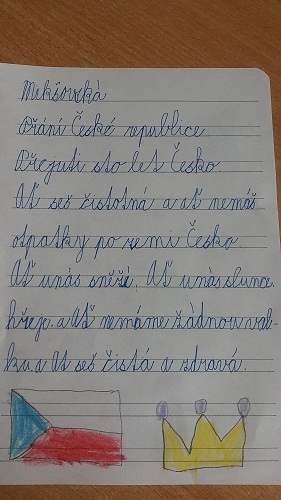 Mikšovská
Přání České republice
Přeju ti sto let Česko.
Ať seš čistotná a ať nemáš
otpatky po zemi Česko.
Ať u nás sněží. Ať u nás slunce
hřeje. a Ať nemáme žádnou vál-
ku a Ať seš čistá a zdravá.